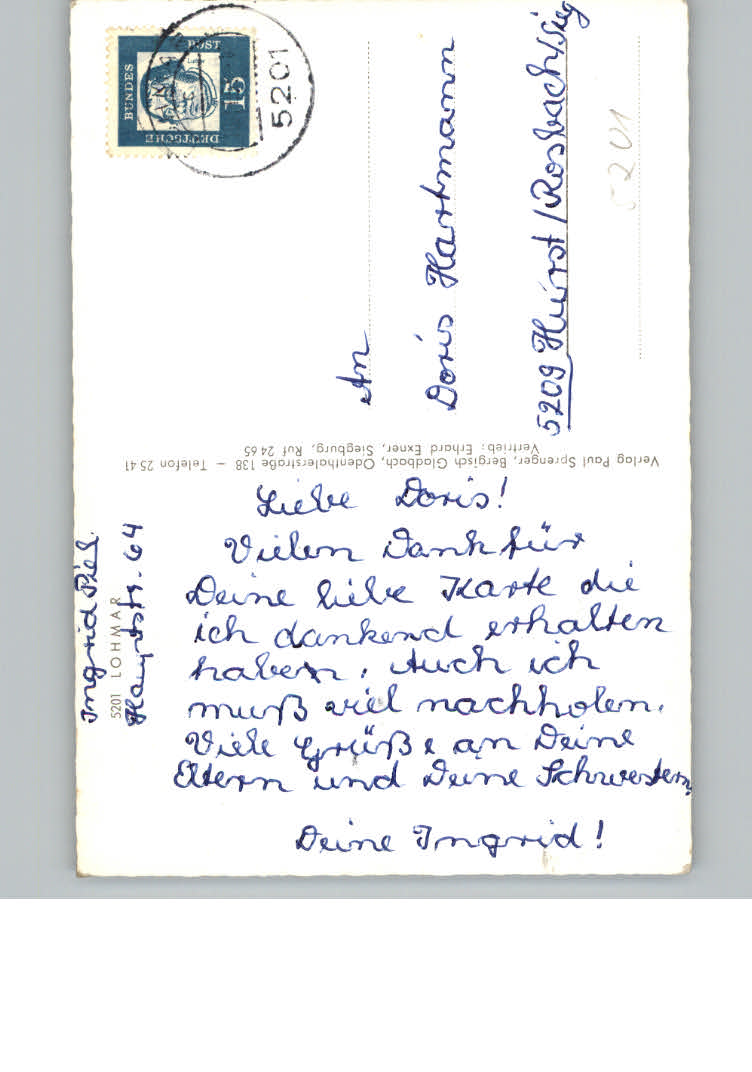 Liebe Doris!
Vielen Dank für
Deine liebe Karte die
ich dankend erhalten
haben. Auch ich
muß viel nachholen.
Viele Grüße an Deine
Eltern und Deine Schwestern.
Deine Ingrid!
Ingrid Piel.
5201 LOHMAR
Hauptstr. 64
Verlag Paul Sprenger, Bergisch Gladbach, Odenthalerstraße 138 – Telefon 25 41
Vertrieb: Erhard Exner, Siegburg, Ruf 24 65
An
Doris Hartmann
5209 Hurst/Rosbach/Sieg
5201
DEUTSCHE
BUNDES
POST
15
5201